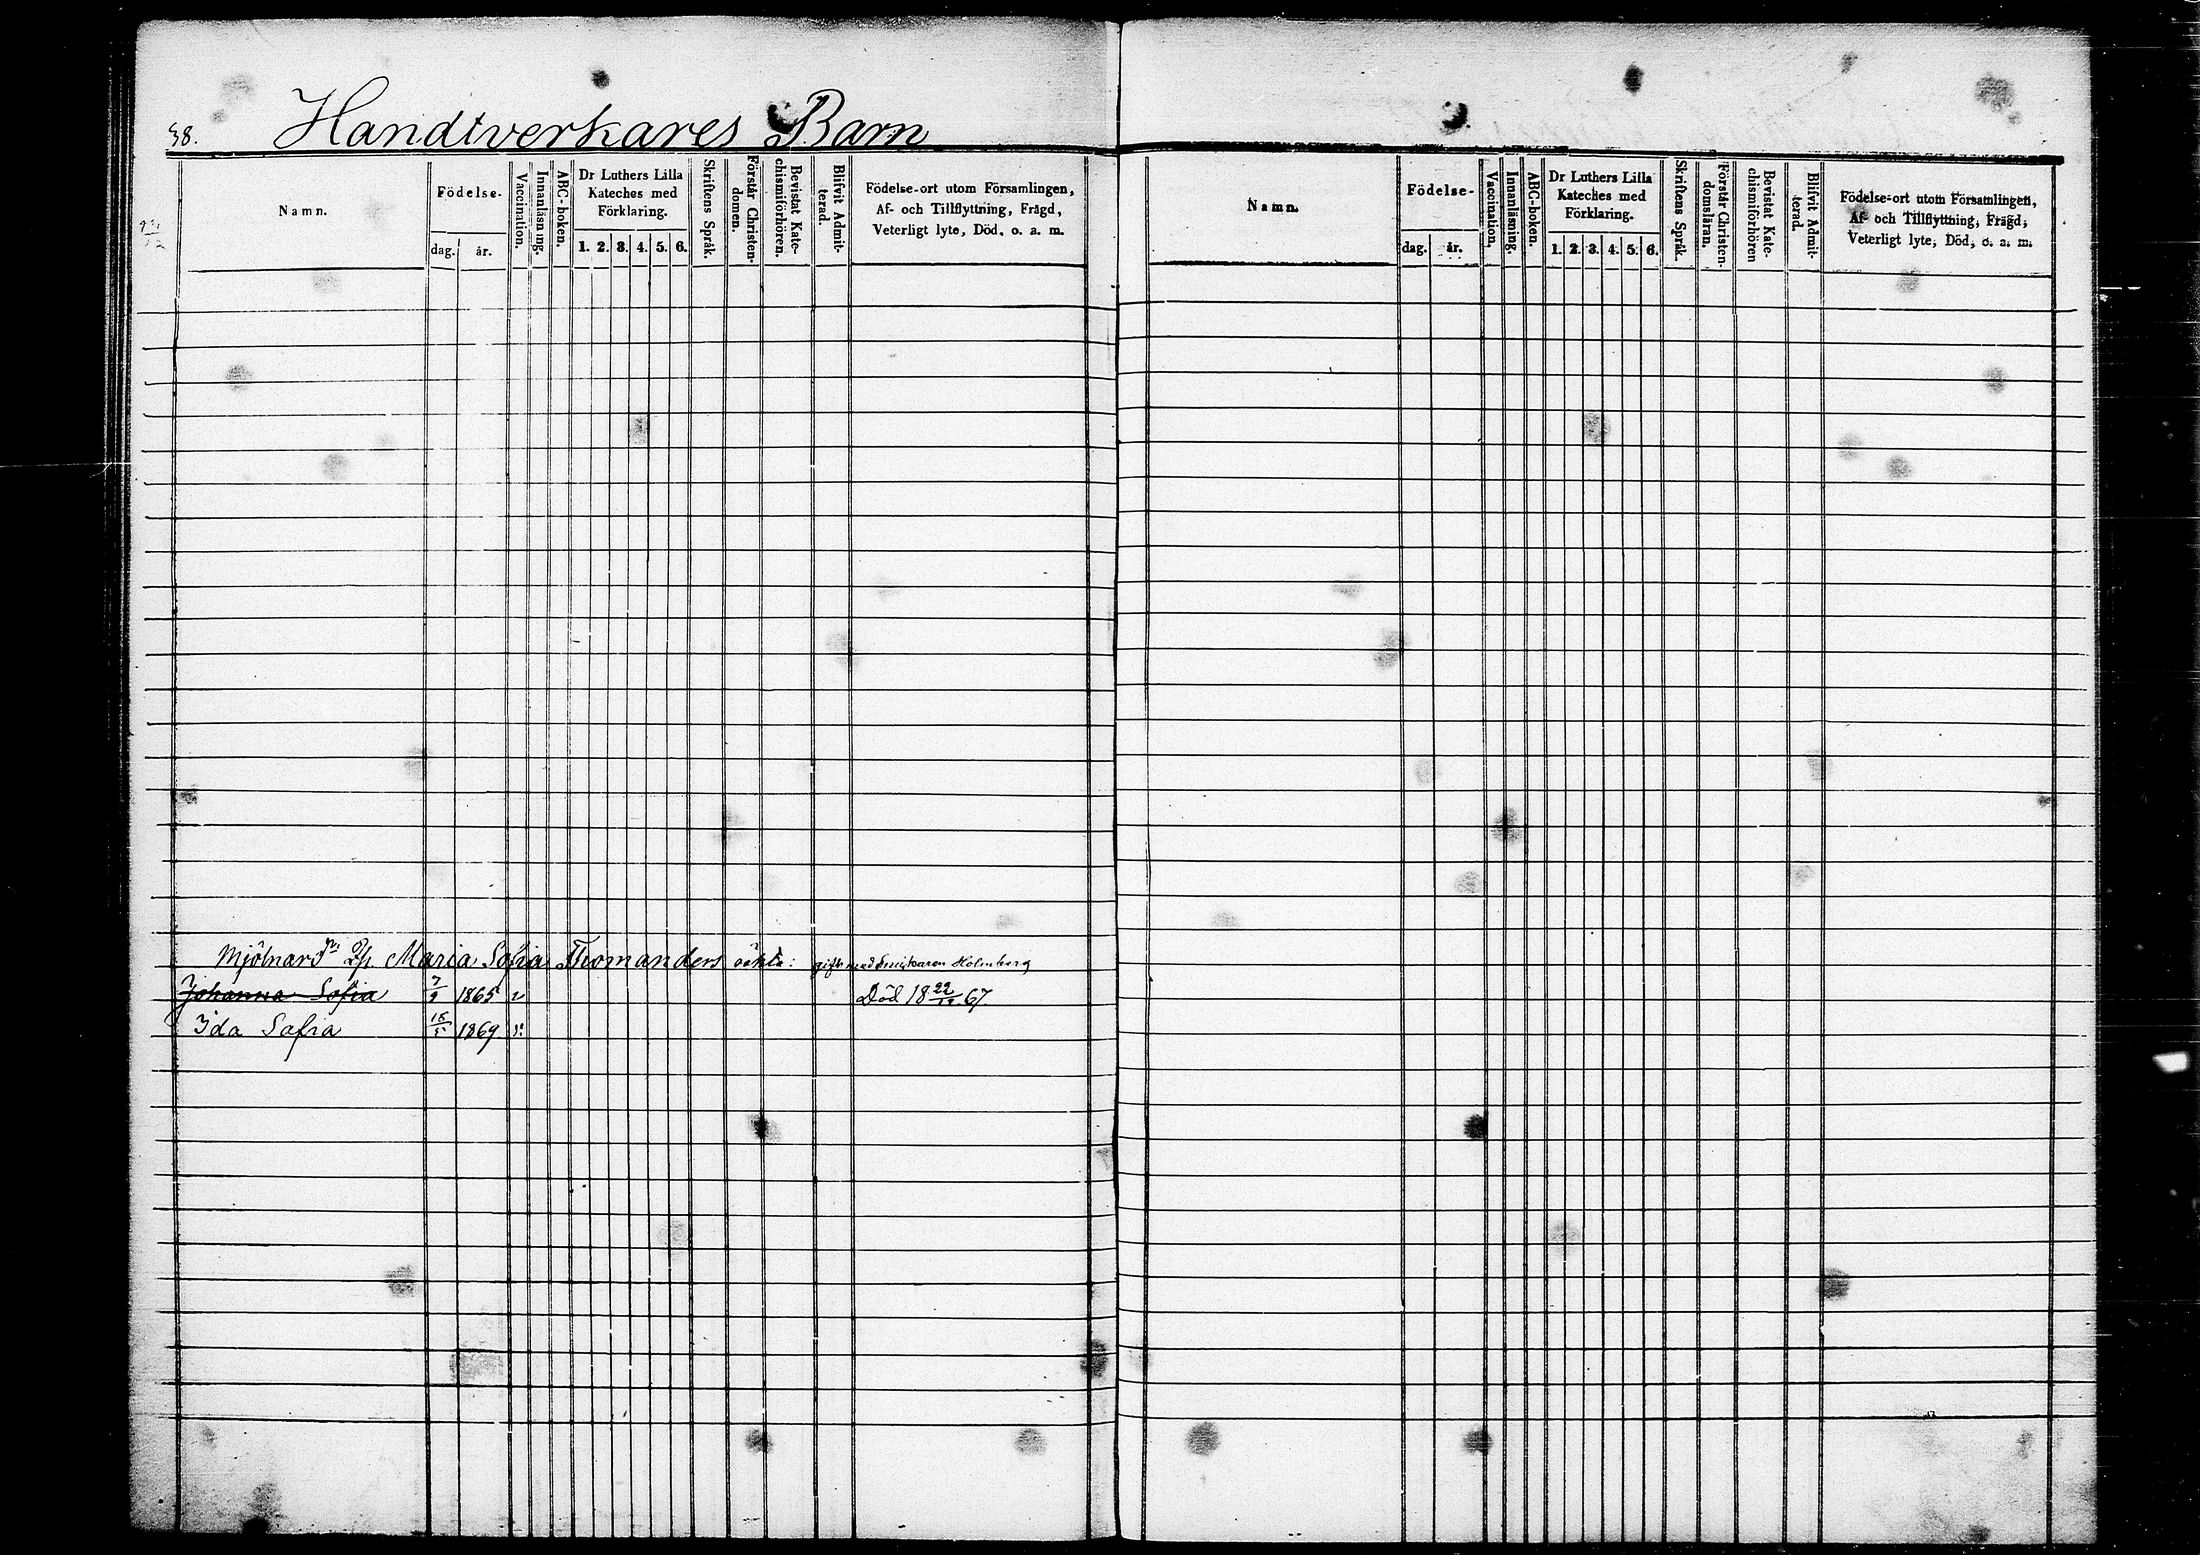 38. Handtverkares Barn
Namn.
Födelse-
dag. år.
Vaccination.
Innanläsning.
ABC-boken.
Dr Luthers Lilla
Kateches med
Förklaring.
1. 2. 3. 4. 5. 6.
Skriftens Språk.
Förstår Christen-
domen.
Bevistat Kate-
chismiförhören.
Blifvit Admit-
terad.
Födelse-ort utom Församlingen,
Af- och Tillflyttning, Frägd,
Veterligt lyte, Död, o. a. m.
Maria Sofia Tromanders äkta: gift med Snickaren Holmberg
Johanna Sofia 7/9 1865 Död 18 22/12 67.
Ida Sofia 1869
Namn.
Födelse-
dag. år.
Vaccination.
Innanläsning.
ABC-boken.
Dr Luthers Lilla
Kateches med
Förklaring.
1. 2. 3. 4. 5. 6.
Skriftens Språk.
Förstår Christen-
domsläran.
Bevistat Kate-
chismiförhören
Blifvit Admit-
terad.
Födelse-ort utom Församlingen,
Af- och Tillflyttning, Frägd,
Veterligt lyte, Död, o. a. m.